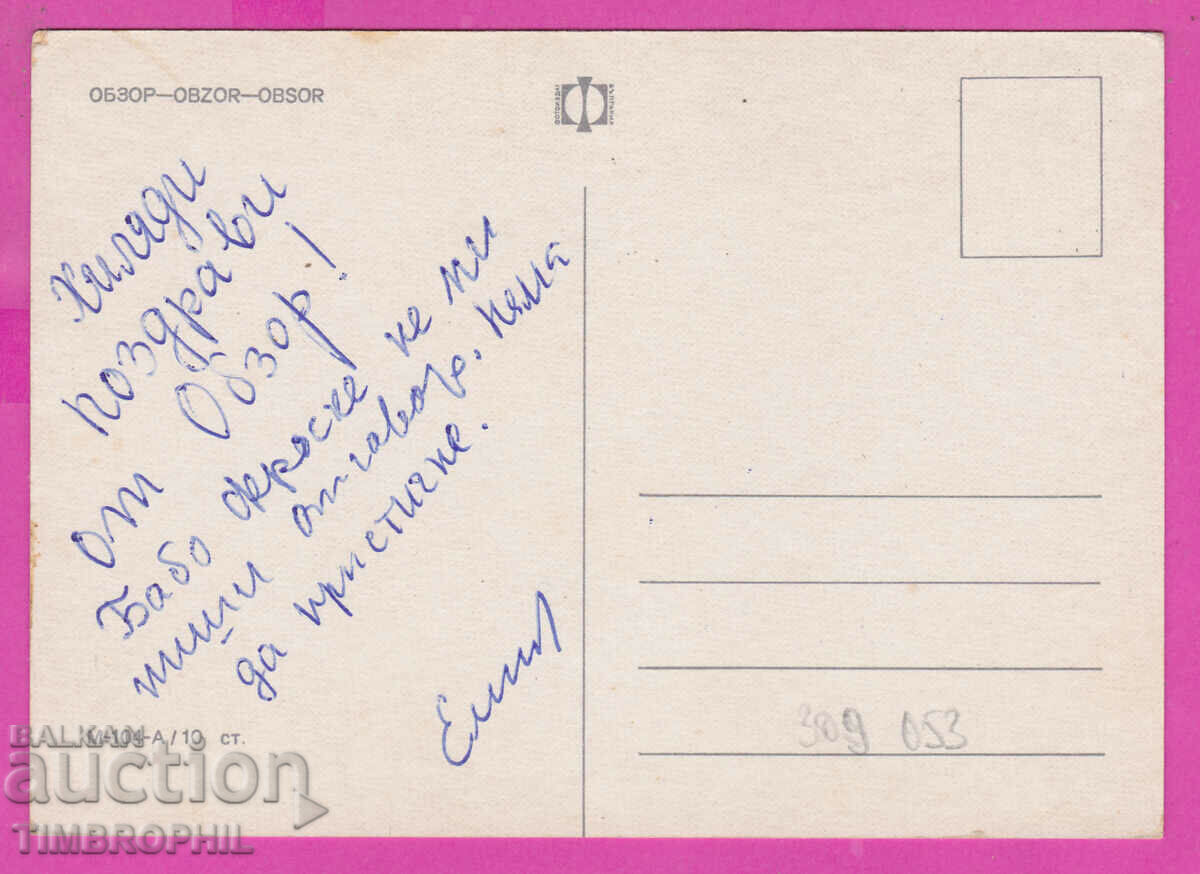 ОБЗОР—OBZOR—OBSOR
ФОТОИЗДАТ
БЪЛГАРИЯ
Хиляди
поздрави
от Обзор!
Бабо не ми
пиши отговор. няма
да пристигне.
Емил
М-104-А/10 ст.
309 053
BALKAN
auction
TIMBROPHIL